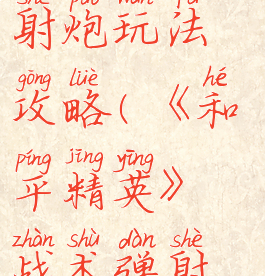 shè pào wán fǎ
射炮玩法
gōng lüè hé
攻略(《和
píng jīng yīng
平精英》
zhàn shù dàn shè
战术弹射